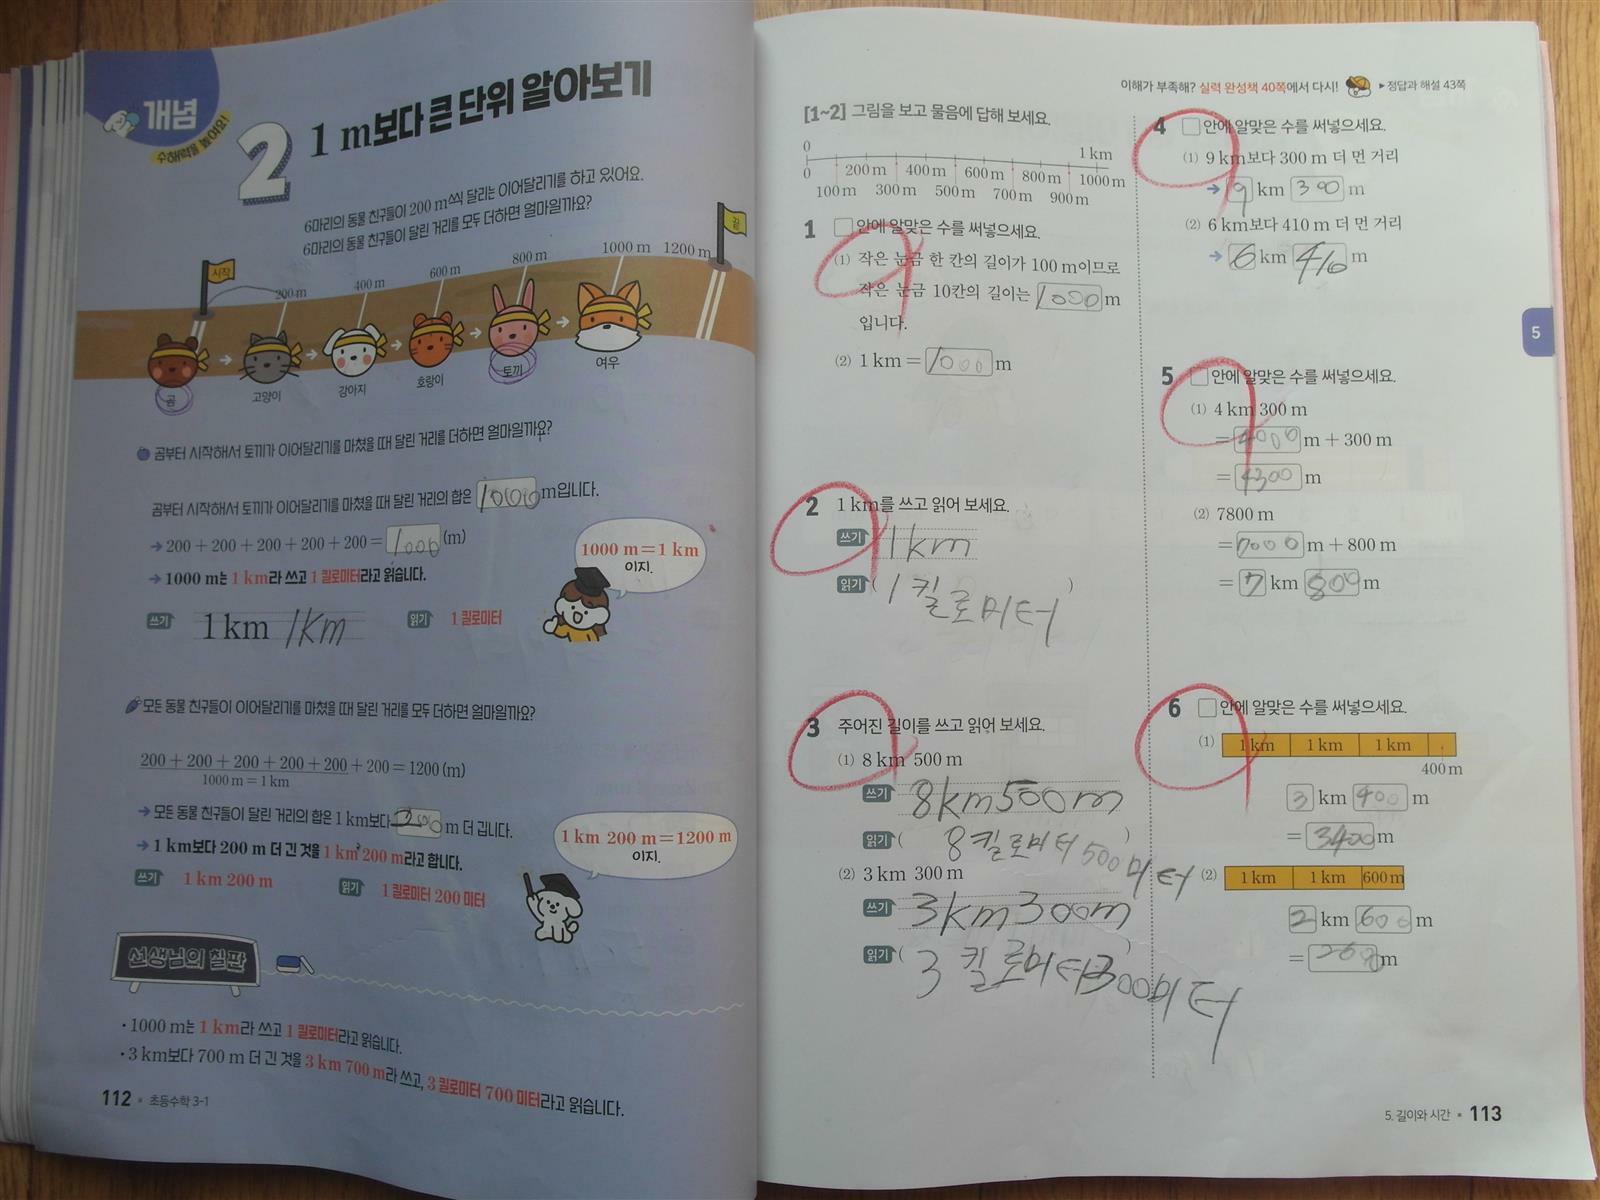 개념
수해력을 높여요!
2
1 m보다 큰 단위 알아보기
6마리의 동물 친구들이 200 m씩 달리는 이어달리기를 하고 있어요.
6마리의 동물 친구들이 달린 거리를 모두 더하면 얼마일까요?
시작
200 m
400 m
600 m
800 m
1000 m
1200 m
끝
곰
고양이
강아지
호랑이
토끼
여우
곰부터 시작해서 토끼가 이어달리기를 마쳤을 때 달린 거리를 더하면 얼마일까요?
곰부터 시작해서 토끼가 이어달리기를 마쳤을 때 달린 거리의 합은 1000 m입니다.
→ 200 + 200 + 200 + 200 + 200 = 1000 (m)
→ 1000 m는 1 km라 쓰고 1 킬로미터라고 읽습니다.
1000 m = 1 km
이지.
쓰기 1 km 1km 읽기 1 킬로미터
모든 동물 친구들이 이어달리기를 마쳤을 때 달린 거리를 모두 더하면 얼마일까요?
200 + 200 + 200 + 200 + 200 + 200 = 1200 (m)
1000 m = 1 km
→ 모든 동물 친구들이 달린 거리의 합은 1 km보다 m 더 깁니다.
→ 1 km보다 200 m 더 긴 것을 1 km 200 m라고 합니다.
1 km 200 m = 1200 m
이지.
쓰기 1 km 200 m 읽기 1 킬로미터 200 미터
선생님의 칠판
• 1000 m는 1 km라 쓰고 1 킬로미터라고 읽습니다.
• 3 km보다 700 m 더 긴 것을 3 km 700 m라 쓰고, 3 킬로미터 700 미터라고 읽습니다.
112 • 초등수학 3-1
이해가 부족해? 실력 완성책 40쪽에서 다시! ▸정답과 해설 43쪽
[1~2] 그림을 보고 물음에 답해 보세요.
0 1 km
0 200 m 400 m 600 m 800 m 1000 m
100 m 300 m 500 m 700 m 900 m
1 □ 안에 알맞은 수를 써넣으세요.
(1) 작은 눈금 한 칸의 길이가 100 m이므로
작은 눈금 10칸의 길이는 1000 m
입니다.
(2) 1 km = 1000 m
2 1 km를 쓰고 읽어 보세요.
쓰기 1km
읽기 ( 1킬로미터 )
3 주어진 길이를 쓰고 읽어 보세요.
(1) 8 km 500 m
쓰기 8km500m
읽기 ( 8킬로미터 500미터 )
(2) 3 km 300 m
쓰기 3km300m
읽기 ( 3킬로미터300미터 )
4 □ 안에 알맞은 수를 써넣으세요.
(1) 9 km보다 300 m 더 먼 거리
→ 9 km 300 m
(2) 6 km보다 410 m 더 먼 거리
→ 6 km 410 m
5 □ 안에 알맞은 수를 써넣으세요.
(1) 4 km 300 m
= 4000 m + 300 m
= 4300 m
(2) 7800 m
= 7000 m + 800 m
= 7 km 800 m
6 □ 안에 알맞은 수를 써넣으세요.
(1) 1 km 1 km 1 km
400 m
3 km 400 m
= 3400 m
(2) 1 km 1 km 600 m
2 km 600 m
= 2600 m
5
5. 길이와 시간 • 113